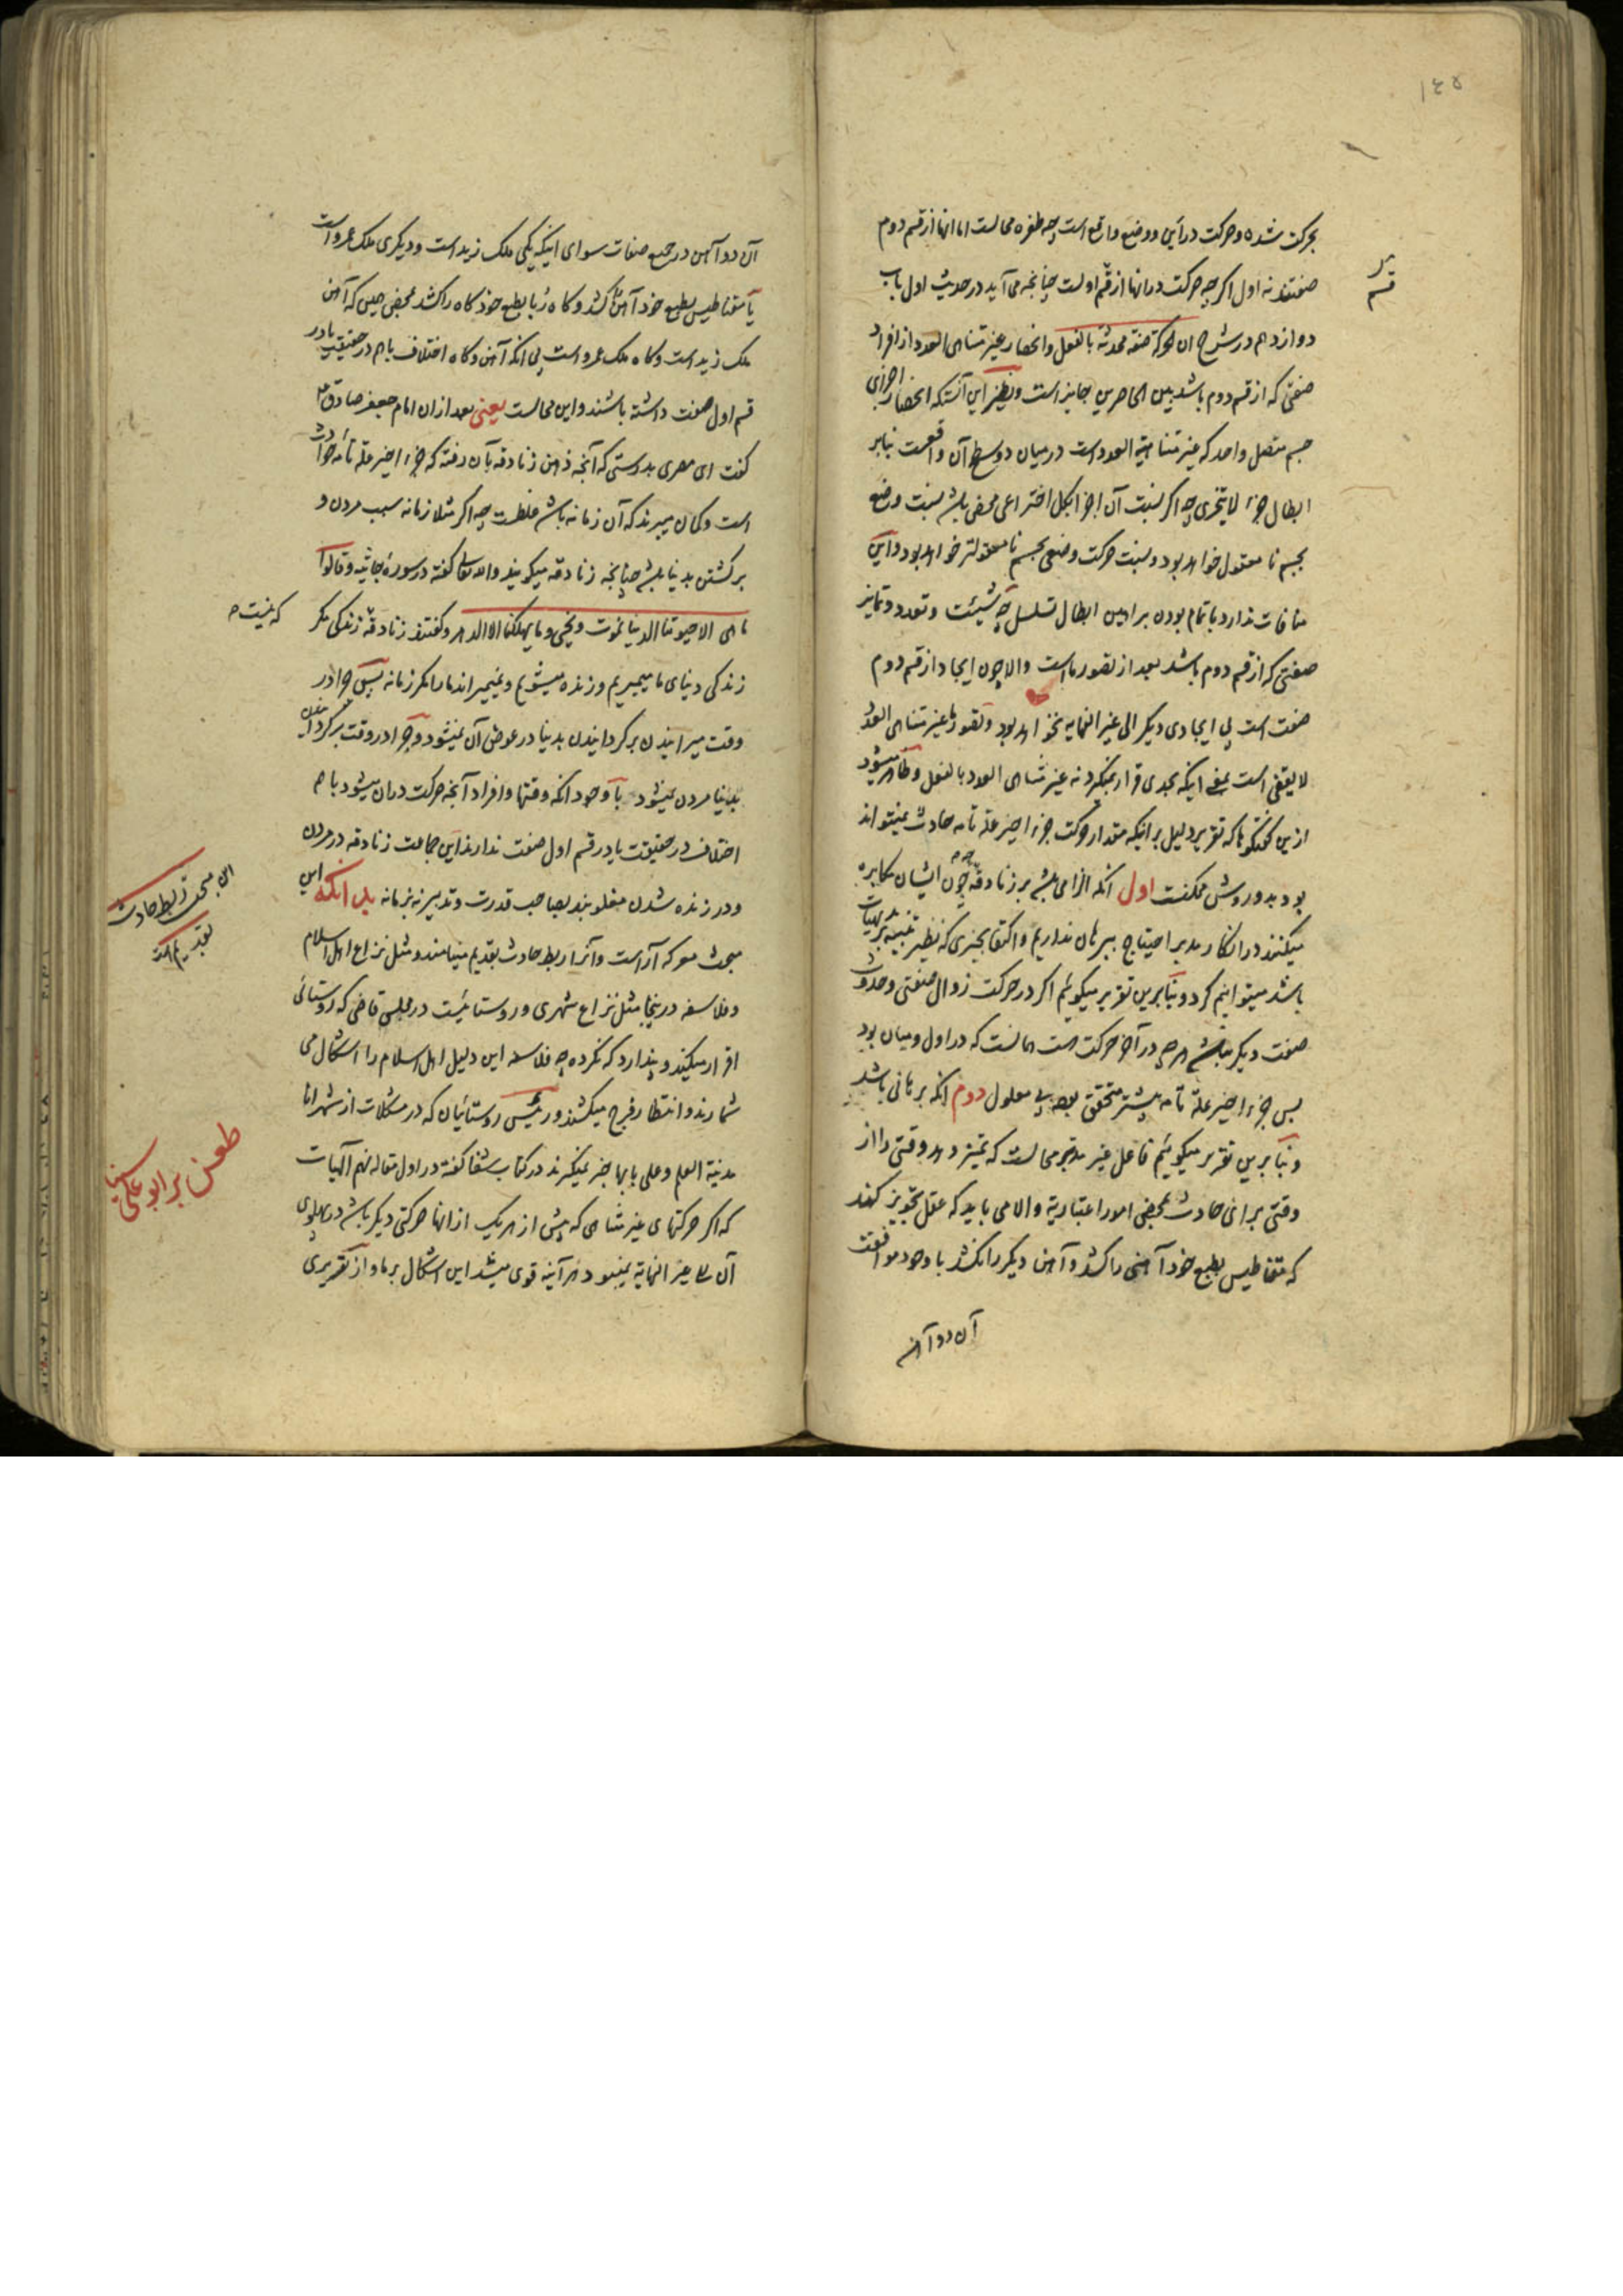 ۱۴۵
بحرکت شده و حرکت در این و وضع واقع است چه طفره محالست اما انها از قسم دوم
صفتند نه اول اکرچه حرکت در انها از قسم اولست چنانچه می آید در حدیث اول باب
دوازدهم در شرح ان الحرکة صفة محدثة بالفعل و انحصار غیر متناهی العدد از افراد
صفتی که از قسم دوم باشد بین الحاصرین جایز است و نظیر این آنستکه انحصار اجزای
جسم متصل واحد که غیر متناهیة العدد است در میان دو سطح آن واقعست بنابر
ابطال جزء لا یتجزی چه اکر نسبت آن اجزا بکل اختراعی محض باشد نسبت وضع
بجسم نا معقول خواهد بود و نسبت حرکت وضعی بجسم نا معقولتر خواهد بود و این
منافات ندارد با تمام بودن براهین ابطال تسلسل چه شیئیت و تعدد و تمایز
صفتی که از قسم دوم باشد بعد از تصور ماست والا چون ایجاد از قسم دوم
صفت است پی ایجادی دیکر الی غیر النهایه نخواهد بود و تصور ما غیر متناهی العدد
لا یقفی است بمعنی اینکه بحدی قرار نمیکیرد نه غیر متناهی العدد بالفعل و ظاهر میشود
ازین کفتکوها که تقریر دلیل بر اینکه مقدار حرکت جزء اخیر علة تامه حادث نمیتواند
بود بدو روش ممکنست اول آنکه الزامی باشد بر زنادقه چون ایشان مکابره
میکنند در انکار مدبر احتیاج ببرهان نداریم و اکتفا بچیزی که نظیر تنبیه بر بدیهیات
باشد میتوانیم کرد و بنابرین تقریر میکوئیم اکر در حرکت زوال صفتی و حدوث
صفت دیکر نباشد هرچه در آخر حرکت هست همانست که در اول و میان بود
پس جزء اخیر علة تامه پیشتر متحقق بود بی معلول دوم آنکه برهانی باشد
و بنابرین تقریر میکوئیم فاعل غیر مدبر محالست که تمیز دهد وقتی را از
وقتی برای حادث بمحض امور اعتباریة والا می باید که عقل تجویز کند
که مقناطیس بطبع خود آهنی را کشد و آهن دیکر را نکشد با وجود موافقت
آن دو آهن
قسم
آن دو آهن در جمیع صفات سوای اینکه یکی ملک زید است و دیکری ملک عمرو است
یا مقناطیس بطبع خود آهن را کشد و کاه ربا بطبع خود کاه را کشد بمحض همین که آهن
ملک زید است و کاه ملک عمرو است بی آنکه آهن و کاه اختلاف باهم در حقیقت یا در
قسم اول صفت داشته باشند و این محالست یعنی بعد ازان امام جعفر صادق ع
کفت ای مصری بدرستی که آنچه ذهن زنادقه بآن رفته که جزء اخیر علة تامه حوادث
است و کمان میبرند که آن زمانه باشد غلطست چه اکر مثلا زمانه سبب مردن و
برکشتن بدنیا باشد چنانچه زنادقه میکویند و الله تعالی کفته در سورة جاثیه و قالوا
ما هی الا حیوتنا الدنیا نموت و نحیی و ما یهلکنا الا الدهر و کفتند زنادقه زندکی مکر
که نیست
زندکی دنیای ما میمیریم و زنده میشویم و نمیمیراند ما را مکر زمانه پس چرا در
وقت میرانیدن برکردانیدن بدنیا در عوض آن نمیشود و چرا در وقت برکردانیدن
بدنیا مردن نمیشود با وجود آنکه وقتها و افراد آنچه حرکت دران میشود باهم
اختلاف در حقیقت یا در قسم اول صفت ندارند این جماعت زنادقه در مردن
و در زنده شدن مغلوبند بصاحب قدرت و تدبیر نه بزمانه بدانکه این
مبحث معرکه آراست و آنرا ربط حادث بقدیم مینامند و مثل نزاع اهل اسلام
و فلاسفه درینجا مثل نزاع شهری و روستائیست در مجلس قاضی که روستائی
اقرار میکند و پندارد که نکرده چه فلاسفه این دلیل اهل اسلام را اشکال می
شمارند و انتظار فرج میکشند و رئیس روستائیان که در مشکلات از شهر انا
مدینة العلم و علی بابها خبر نمیکیرند در کتاب شفا کفته در اول مقاله نهم الهیات
که اکر حرکتهای غیر متناهی که پیش از هر یک از انها حرکتی دیکر باشد در پهلوی
آن الی غیر النهایة نمیبود هر آینه قوی میشد این اشکال بر ما و از تقریری
این مبحث ربط حادث
بقدیم است
طعن بر ابو علی سینا